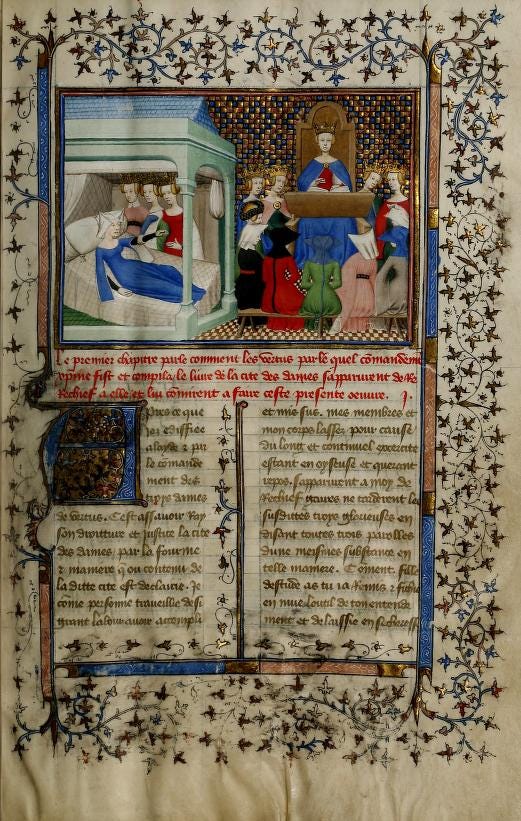 Le premier chapitre parle comment les vertus par le quel comandeme
xpine fist et compila le livre de la cite des dames sapparurent de Re
Rechief a elle et luy commirent a faire ceste presente oeuvre. J.
Apres ce que
jez ediffiee
a layde z par
le comande
ment des
troys dames
de vertus. Cest assavoir Ray
son droitture et justice la cite
des dames par la fourme
z maniere q ou contenu de
la ditte cite est declairie. Je
come personne travueillie de si
grant labour avoir acompli
et mis sus. mes membres et
mon corps lassez pour cause
du long et continuel excercite
estant en oyseuse et querant
repos. sapparurent a moy de
Rechief gaires ne tarderent les
susdittes troys glorieuses en
disant toutes troys parolles
dune meismes substance en
telle maniere. Coment fille
destude as tu ja Remis z fichie
en mue loutil de ton entende
ment et delaissie en secheresse